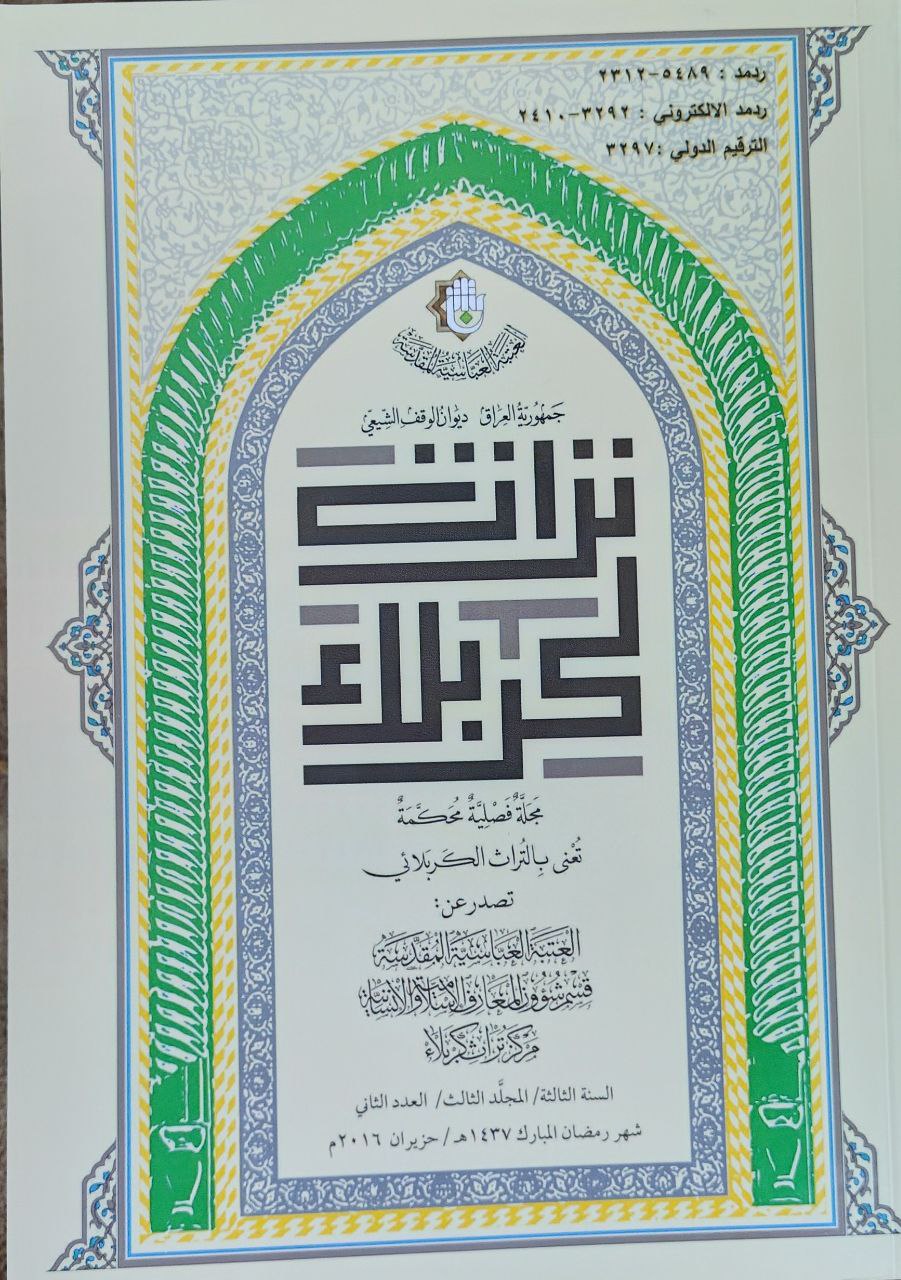 ردمد : ٥٤٨٩-٢٣١٢
ردمد الالكتروني : ٣٢٩٢-٢٤١٠
الترقيم الدولي :٣٢٩٧
العتبة العباسية المقدسة
جَمهُوريَّةُ العِرَاق ديوانُ الوقفِ الشِيعيّ
تراث
كربلاء
مَجَلَّةٌ فَصْلِيَّةٌ مُحَكَّمَةٌ
تُعْنى بِالتُراث الكَربَلائي
تصدر عن:
العتبة العباسية المقدسة
قسم شؤون المعارف الإسلامية والإنسانية
مركز تراث كربلاء
السنة الثالثة/ المجلَّد الثالث/ العدد الثاني
شهر رمضان المبارك ١٤٣٧هـ/ حزيران ٢٠١٦م